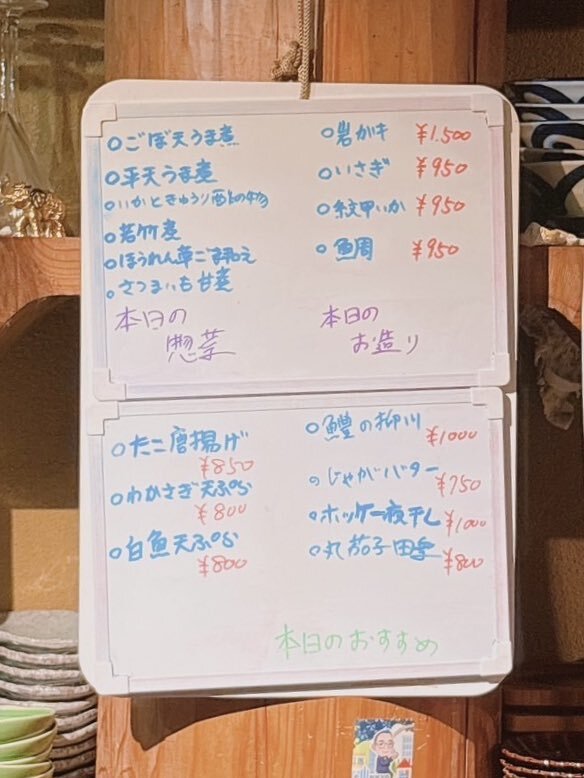 ○ごぼ天うま煮
○平天うま煮
○いかときゅうり酢の物
○若竹煮
○ほうれん草ごま和え
○さつまいも甘煮
本日の
惣菜
○岩がキ ¥1,500
○いさぎ ¥950
○紋甲いか ¥950
○鯛 ¥950
本日の
お造り
○たこ唐揚げ
¥850
○わかさぎ天ぷら
¥800
○白魚天ぷら
¥800
○鱧の柳川
¥1000
○じゃがバター
¥750
○ホッケ一夜干し
¥1000
○丸茄子田楽
¥800
本日のおすすめ